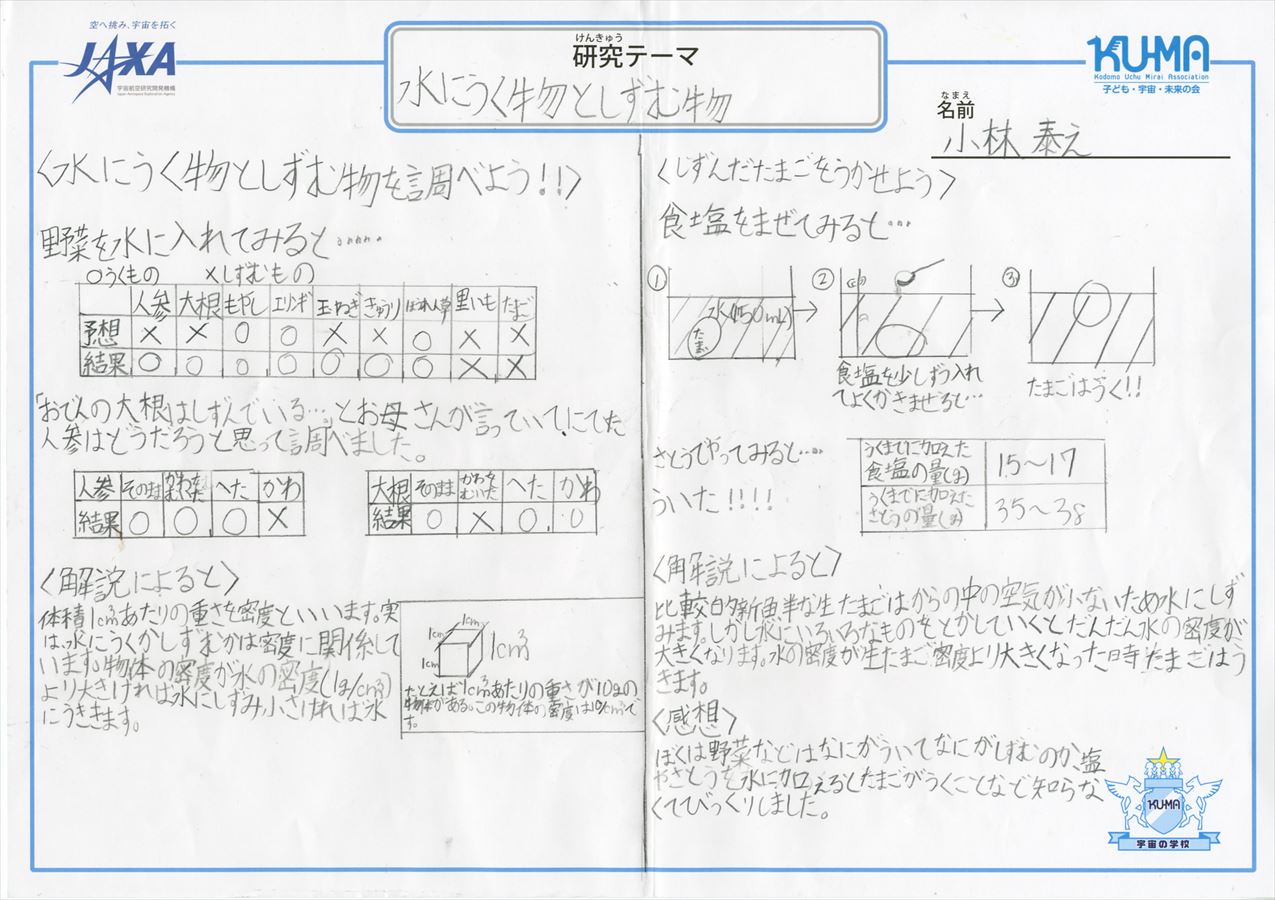 空へ挑み、宇宙を拓く
JAXA
宇宙航空研究開発機構
Japan Aerospace Exploration Agency
けんきゅう
研究テーマ
水にうく物としずむ物
KU-MA
Kodomo Uchu Mirai Association
子ども・宇宙・未来の会
なまえ
名前
小林 泰え
〈水にうく物としずむ物を調べよう!!〉
野菜を水に入れてみると……
○うくもの ×しずむもの
人参 大根 もやし エリンギ 玉ねぎ きゅうり ほうれん草 里いも たまご
予想 × × ○ ○ × × ○ × ×
結果 ○ ○ ○ ○ ○ ○ ○ × ×
「おでんの大根はしずんでいる…。とお母さんが言っていて、にてた
人参はどうだろうと思って調べました。
人参 そのまま かわをむいた へた かわ
結果 ○ ○ ○ ×
大根 そのまま かわをむいた へた かわ
結果 ○ × ○ ○
〈解説によると〉
体積1cm³あたりの重さを密度といいます。実
は、水にうくかしずむかは密度に関係して
います。物体の密度が水の密度(1g/cm³)
より大きければ水にしずみ、小さければ水
にうききます。
1cm
1cm
1cm
1cm³
たとえば1cm³あたりの重さが10gの
物体がある。この物体の密度は10/cm³で
す。
〈しずんだたまごをうかせよう〉
食塩をまぜてみると…
① 水(150mL)
たまご
②
食塩を少しずつ入れ
てよくかきまぜると…
③
たまごはうく!!
さとうでやってみると…
ういた!!!!
うくまでに加えた
食塩の量(g) 15〜17
うくまでに加えた
さとうの量(g) 35〜38
〈解説によると〉
比較的新鮮な生たまごはからの中の空気が少ないため水にしず
みます。しかし水にいろいろなものをとかしていくとだんだん水の密度が
大きくなります。水の密度が生たまご密度より大きくなった時たまごはう
きます。
〈感想〉
ぼくは野菜などはなにがういてなにがしずむのか、塩
やさとうを水に加えるとたまごがうくことなど知らな
くてびっくりしました。
KU-MA
宇宙の学校